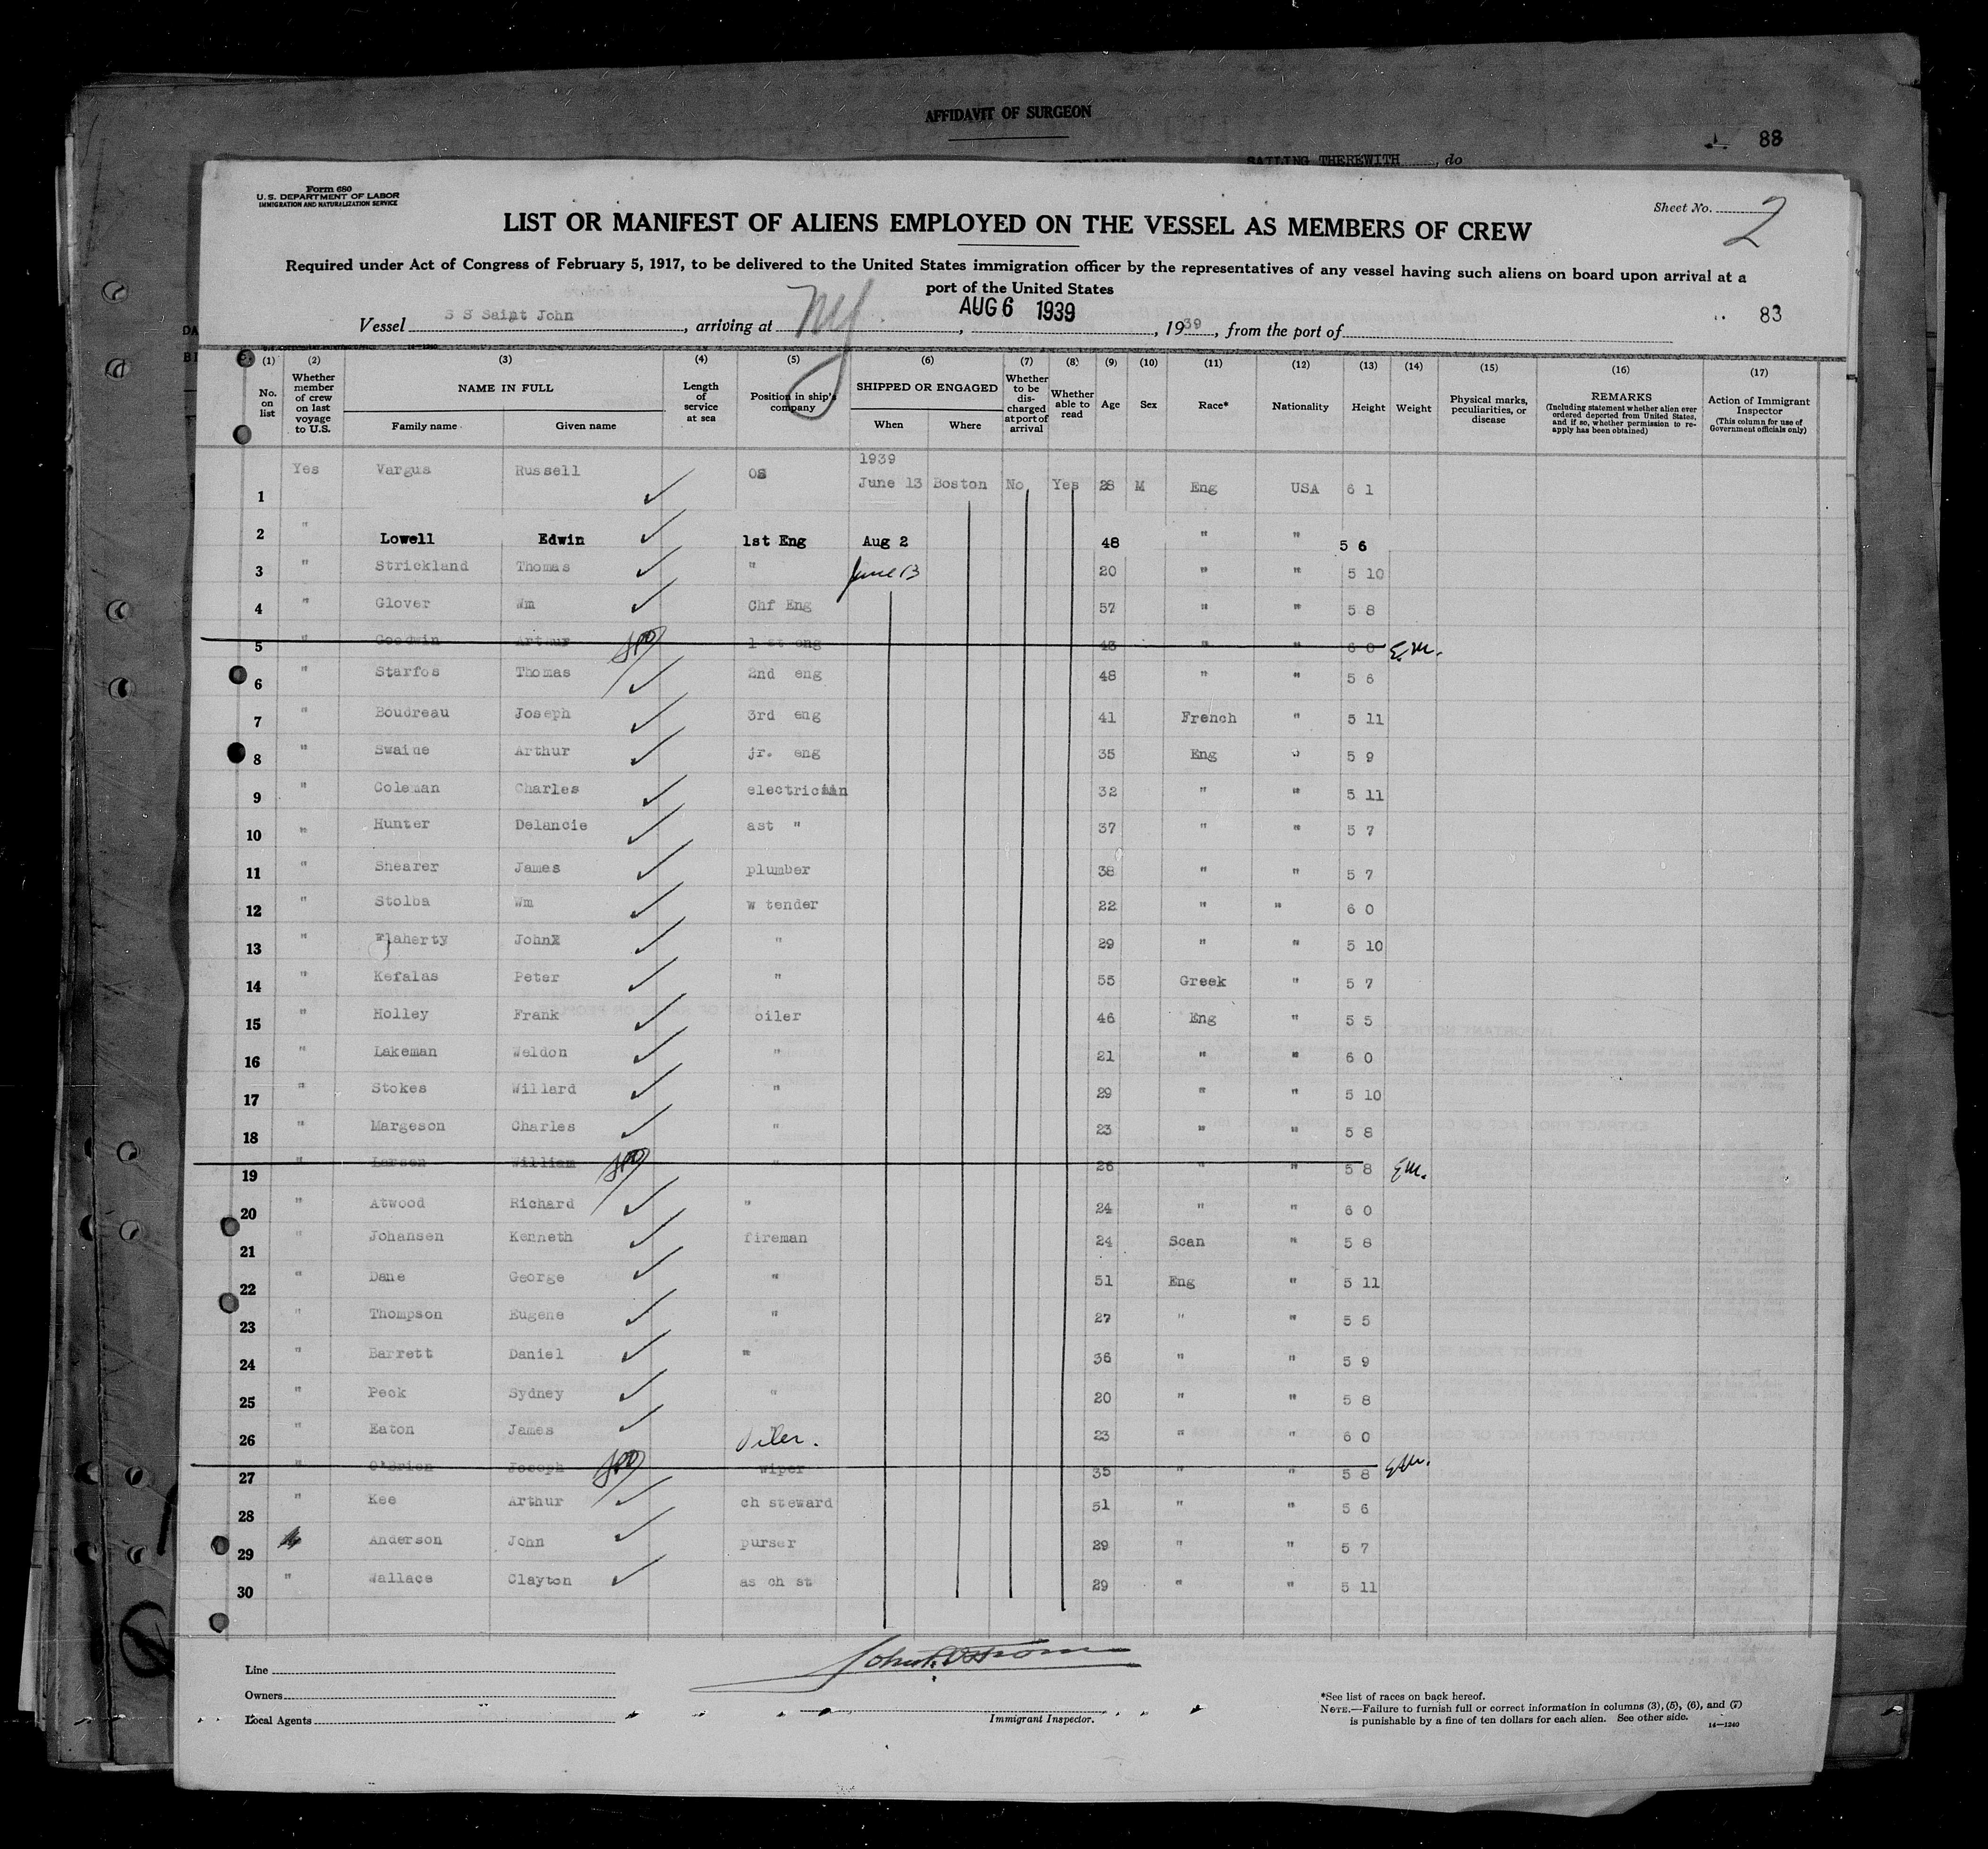 AFFIDAVIT OF SURGEON
88
SAILING THEREWITH, do
Form 680
U.S. DEPARTMENT OF LABOR
IMMIGRATION AND NATURALIZATION SERVICE
Sheet No. 2
LIST OR MANIFEST OF ALIENS EMPLOYED ON THE VESSEL AS MEMBERS OF CREW
Required under Act of Congress of February 5, 1917, to be delivered to the United States immigration officer by the representatives of any vessel having such aliens on board upon arrival at a
port of the United States
Vessel S S Saint John, arriving at NY, AUG 6 1939, 1939, from the port of
83
(1) (2) (3) (4) (5) (6) (7) (8) (9) (10) (11) (12) (13) (14) (15) (16) (17)
No. on list
Whether member of crew on last voyage to U.S.
NAME IN FULL
Family name Given name
Length of service at sea
Position in ship's company
SHIPPED OR ENGAGED
When Where
Whether to be discharged at port of arrival
Whether able to read
Age
Sex
Race*
Nationality
Height
Weight
Physical marks, peculiarities, or disease
REMARKS
(Including statement whether alien ever ordered deported from United States, and if so, whether permission to reapply has been obtained)
Action of Immigrant Inspector
(This column for use of Government officials only)
1 Yes Vargus Russell OS 1939 June 13 Boston No Yes 28 M Eng USA 6 1
2 " Lowell Edwin 1st Eng Aug 2 48 " " 5 6
3 " Strickland Thomas " June 13 20 " " 5 10
4 " Glover Wm Chf Eng 57 " " 5 8
5 " Goodwin Arthur 1 st eng 43 " " 6 0 E.M.
6 " Starfos Thomas 2nd eng 48 " " 5 6
7 " Boudreau Joseph 3rd eng 41 French " 5 11
8 " Swaine Arthur jr. eng 35 Eng " 5 9
9 " Coleman Charles electrician 32 " " 5 11
10 " Hunter Delancie ast " 37 " " 5 7
11 " Shearer James plumber 38 " " 5 7
12 " Stolba Wm w tender 22 " " 6 0
13 " Flaherty John " 29 " " 5 10
14 " Kefalas Peter " 55 Greek " 5 7
15 " Holley Frank oiler 46 Eng " 5 5
16 " Lakeman Weldon " 21 " " 6 0
17 " Stokes Willard " 29 " " 5 10
18 " Margeson Charles " 23 " " 5 8
19 " Larsen William " 26 " " 5 8 E.M.
20 " Atwood Richard " 24 " " 6 0
21 " Johansen Kenneth fireman 24 Scan " 5 8
22 " Dane George " 51 Eng " 5 11
23 " Thompson Eugene " 27 " " 5 5
24 " Barrett Daniel " 36 " " 5 9
25 " Peck Sydney " 20 " " 5 8
26 " Eaton James Oiler. 23 " " 6 0
27 " O'Brien Joseph wiper 35 " " 5 8 E.M.
28 " Kee Arthur ch steward 51 " " 5 6
29 Anderson John purser 29 " " 5 7
30 " Wallace Clayton as ch st 29 " " 5 11
Line
Owners
Local Agents
Immigrant Inspector.
*See list of races on back hereof.
NOTE.—Failure to furnish full or correct information in columns (3), (5), (6), and (7)
is punishable by a fine of ten dollars for each alien. See other side.
14—1240